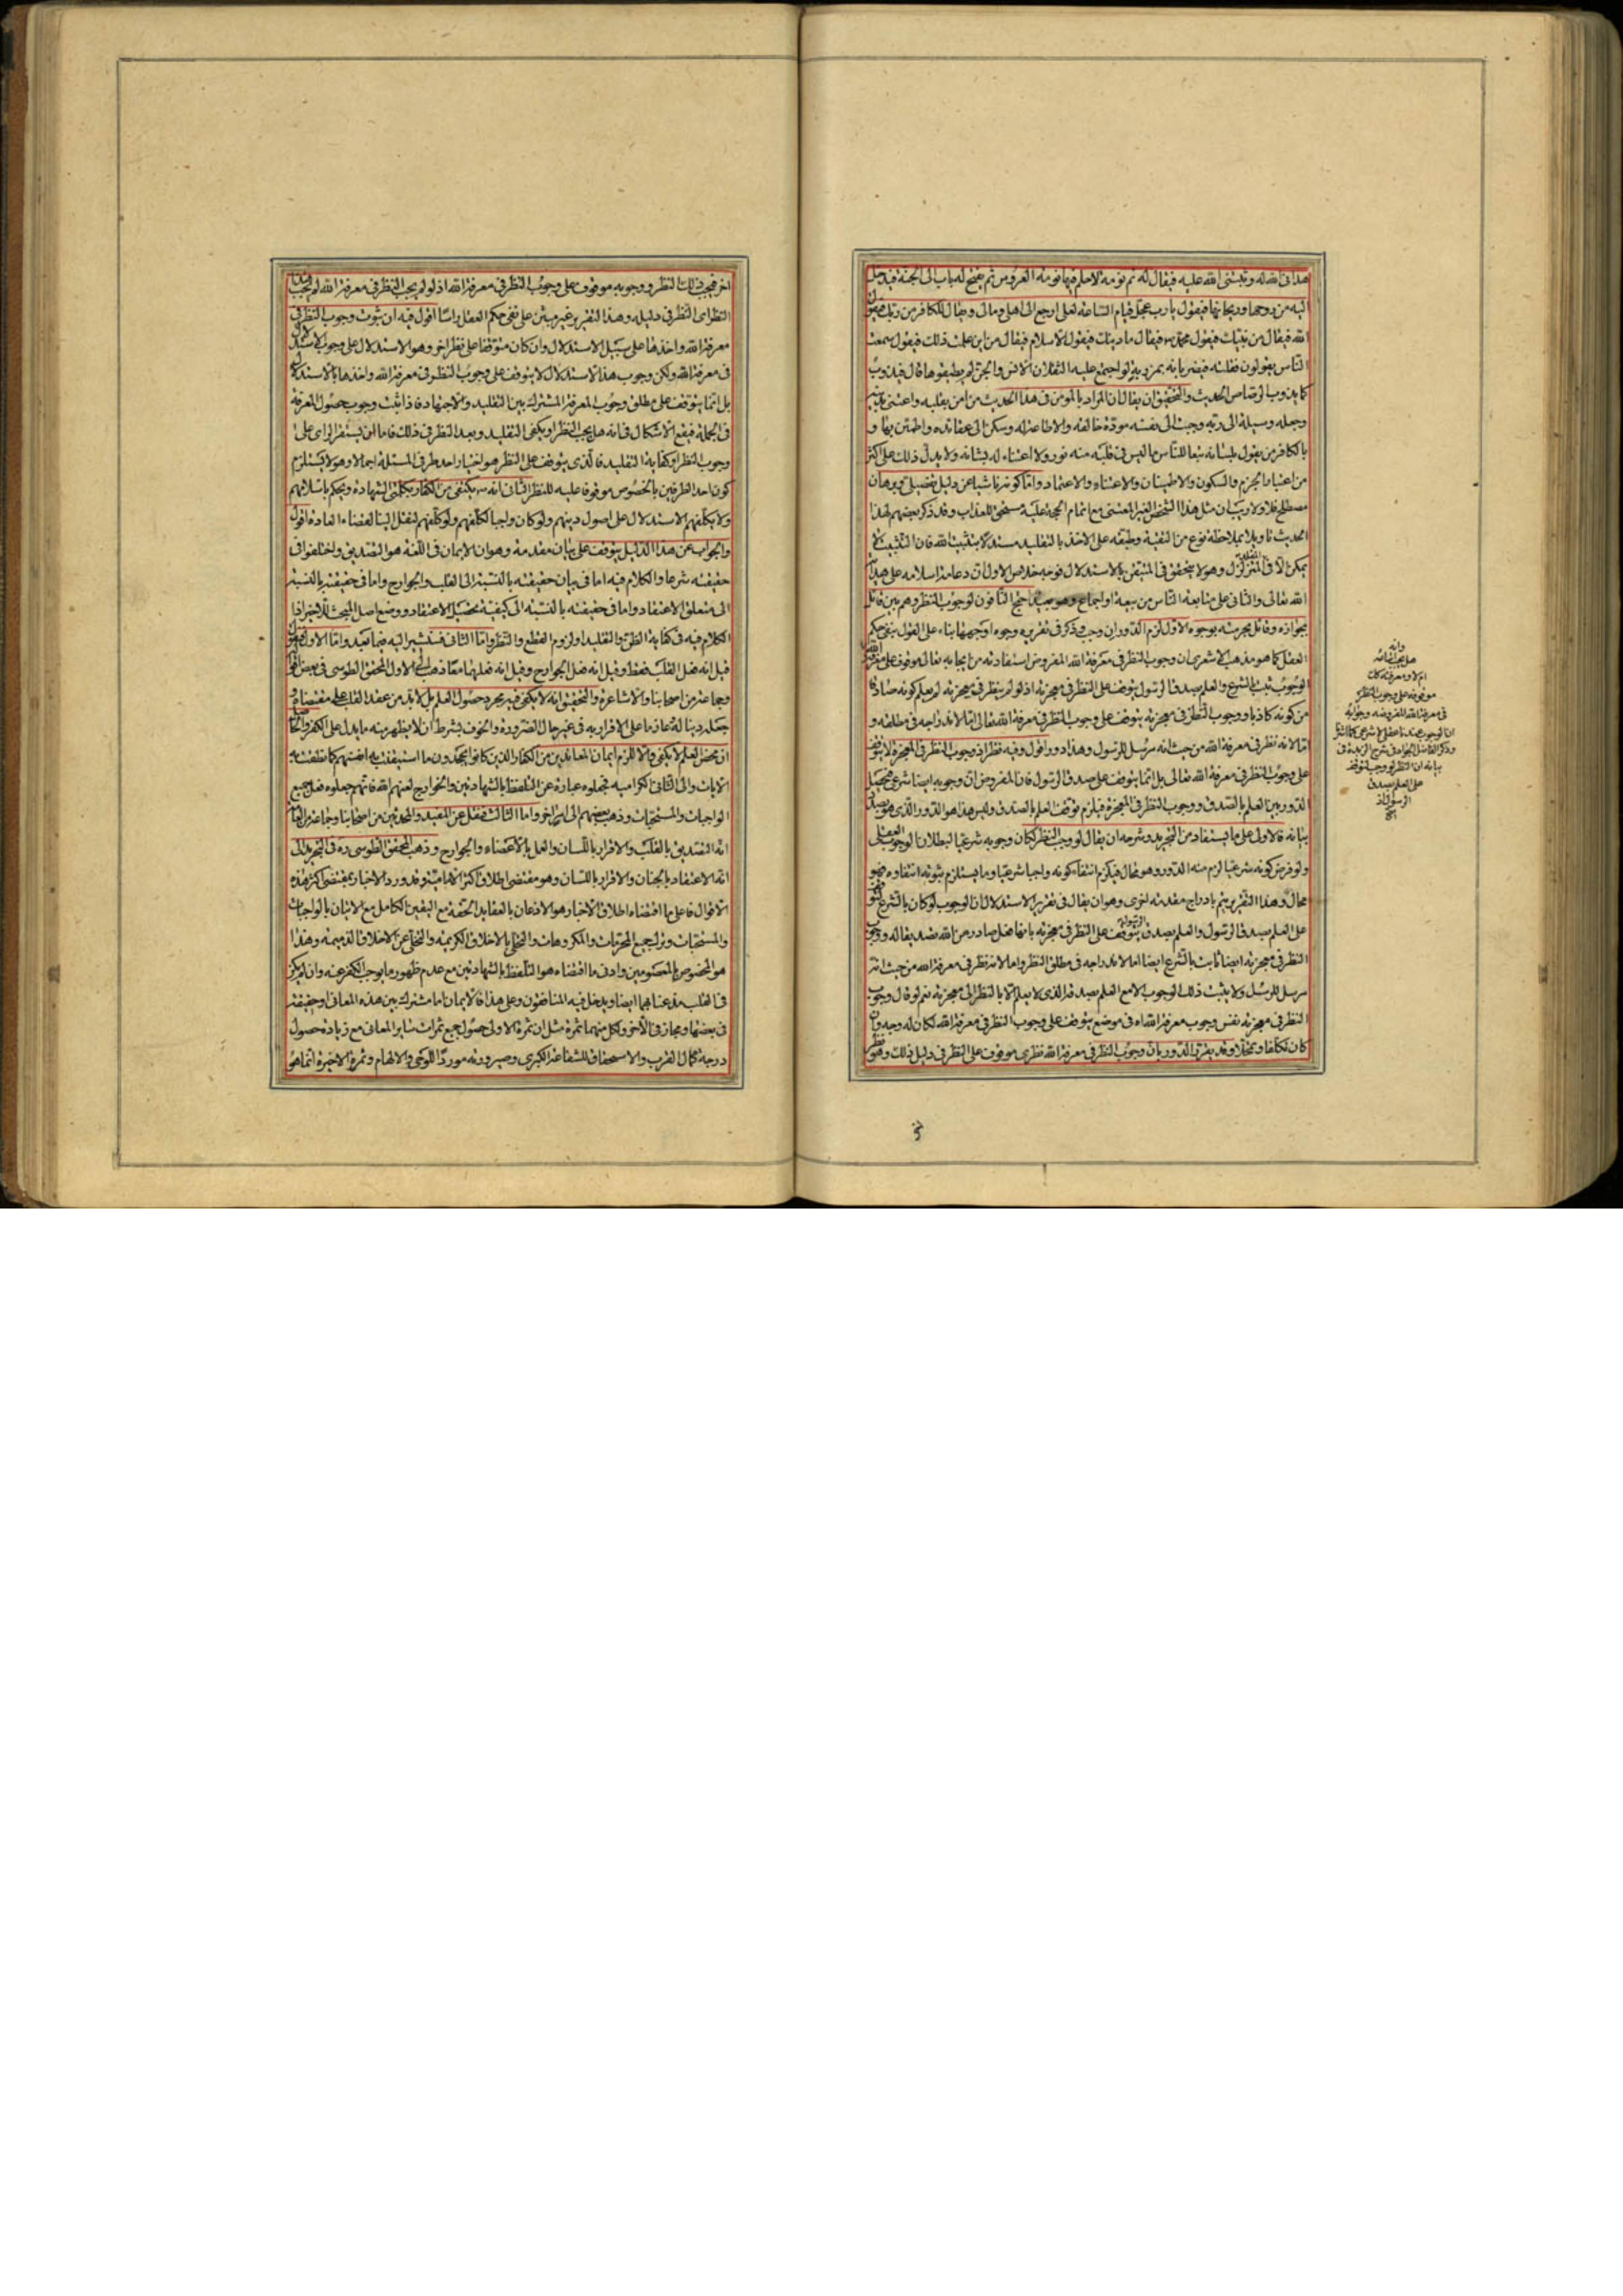 هدانى الله له وثبتنى الله عليه فيقال له نم نومة لا حلم فيها نومة العروس ثم يفتح له باب الى الجنة فيدخل
اليه من روحها وريحانها فيقول يا رب عجل قيام الساعة لعلى ارجع الى اهلى ومالى ويقال للكافر من ربك فيقول
الله فيقال من نبيك فيقول محمد فيقال ما دينك فيقول الاسلام فيقال من اين علمت ذلك فيقول سمعت
الناس يقولون فقلته فيضربانه بمرزبة لو اجتمع عليه الثقلان الانس والجن لم يطيقوها قال فيذوب
كما يذوب الرصاص الحديث والتحقيق ان يقال ان المراد بالمومن فى هذا الحديث من امن بقلبه واعتنى
وجعله وسيلة الى ربه وجنب الى نفسه مودة خالقه والاطاعة له وسكن الى عقائده واطمئن بها و
بالكافر من يقول بلسانه تبعا للناس ما ليس فى قلبه منه نور ولا اعتناء له بشانه ولا يدل ذلك على اكثر
من اعتبار الجزم والسكون والاطمينان والاعتناء والاعتماد واما كونه ناشيا عن دليل تفصيلى وبرهان
مصطلح فلا ولا ريب ان مثل هذا الشخص الغير المعتنى مع اتمام الحجة عليه مستحق للعذاب وقد ذكر بعضهم لهذا
الحديث تاويلا بملاحظة نوع من التقية وطبقه على الاخذ بالتقليد مستدلا بتثبيت الله فان التثبيت لا
يمكن الا فى المتزلزل وهو لا يتحقق فى المتيقن بالاستدلال فوجه خلاص الاول ان دعامة اسلامه على هداية
الله تعالى والثانى على متابعة الناس من بيعة او اجماع احتج النافون لوجوب النظر وهم بين قائل
بجوازه وقائل بحرمته بوجوه الاول لزم الدور ان وجب وذكر فى تقريره وجوه اوجهها بناء على القول بنفى حكم
العقل كما هو مذهب الاشعرى ان وجوب النظر فى معرفة الله المفروض استفادته من ايجابه تعالى موقوف على معرفة الله
الوجوب ثبت بالشرع والعلم بصدق الرسول يتوقف على النظر فى معجزته اذ لو لم ينظر فى معجزته لم يعلم كونه صادقا
من كونه كاذبا ووجوب النظر فى معجزته يتوقف على وجوب النظر فى معرفة الله تعالى اما لاندراجه فى مطلقه و
اما لانه نظر فى معرفة الله من حيث انه مرسل للرسول وهذا دور اقول وفيه نظر اذ وجوب النظر فى المعجزة لا يتوقف
على وجوب النظر فى معرفة الله تعالى بل انما يتوقف على صدق الرسول فان المفروض ان وجوبه ايضا شرعى فيحصل
الدور بين العلم بالصدق ووجوب النظر فى المعجزة فيلزم توقف العلم بالصدق وليس هذا هو الدور الذى هو بصدد
بيانه فالاولى على ما يستفاد من التجريد وشرحه ان يقال لو وجب النظر لكان وجوبه شرعيا لبطلان الوجوب العقلى
ولو فرض كونه شرعيا لزم منه الدور وهو محال فيلزم انتفاء كونه واجبا شرعيا وما يستلزم ثبوته انتفاؤه فهو
محال وهذا التقرير يتم بادراج مقدمة اخرى وهو ان يقال فى تقرير الاستدلال ان الوجوب لو كان بالشرع لتوقف
على العلم بصدق الرسول والعلم بصدق الرسول يتوقف على النظر فى معجزته بانها فعل صادر من الله تصديقا له ووجوب
النظر فى معجزته ايضا ثابت بالشرع ايضا اما لاندراجه فى مطلق النظر واما لانه نظر فى معرفة الله من حيث انه
مرسل للرسل ولا يثبت ذلك الوجوب الا مع العلم بصدقه الذى لا يعلم الا بالنظر الى معجزته نعم لو قال وجوب
النظر فى معجزته نفس وجوب معرفة الله اه فى موضع يتوقف على وجوب النظر فى معرفة الله لكان له وجه وان
كان تكلفا وتمحلا وقد يقرر الدور بان وجوب النظر فى معرفة الله نظرى موقوف على النظر فى دليل ذلك وهو نظر
وانه
هل يجب
ام لا ومعرفة كان
موقوفة على وجوب النظر
فى معرفة الله المفروضة وجوابه
ان الوجوب عندنا عقلى لا شرعى كما اشار
وذكر الفاضل الجواد فى شرح الزبدة فى
بيانه ان النظر لو وجب لتوقف
على العلم بصدق
الرسول اذ
اخر فيجب ذلك النظر ووجوبه موقوف على وجوب النظر فى معرفة الله اذ لو لم يجب النظر فى معرفة الله لم يجب هذا
النظر اى النظر فى دليله وهذا التقرير غير مبتن على نفى حكم العقل راسا اقول فيه ان ثبوت وجوب النظر فى
معرفة الله واخذها على سبيل الاستدلال وان كان متوقفا على نظر اخر وهو الاستدلال على وجوب الاستدلال
فى معرفة الله ولكن وجوب هذا الاستدلال لا يتوقف على وجوب النظر فى معرفة الله واخذها بالاستدلال
بل انما يتوقف على مطلق وجوب المعرفة المشترك بين التقليد والاجتهاد فاذا ثبت وجوب حصول المعرفة
فى الجملة فيقع الاشكال فى انه هل يجب النظر او يكفى التقليد وبعد النظر فى ذلك فاما ان يستقر الراى على
وجوب النظر او كفاية التقليد فالذى يتوقف على النظر هو اختيار احد طرفى المسئلة اجمالا وهو لا يستلزم
كون احد الطرفين بالخصوص موقوفا عليه للنظر الثانى انه ص يكتفى من الكفار بكلمتى الشهادة ويحكم باسلامهم
ولا يكلفهم الاستدلال على اصول دينهم ولو كان واجبا لكلفهم ولو كلفهم لنقل الينا لقضاء العادة اقول
والجواب عن هذا الدليل يتوقف على بيان مقدمة وهو ان الايمان فى اللغة هو التصديق واختلفوا فى
حقيقته شرعا والكلام فيه اما فى بيان حقيقته بالنسبة الى القلب والجوارح واما فى حقيقته بالنسبة
الى متعلق الاعتقاد واما فى حقيقته بالنسبة الى كيفية تحصيل الاعتقاد ووضع اصل المبحث للاخير اذا
الكلام فيه فى كفاية الظن والتقليد او لزوم القطع والنظر واما الثانى فسنشير اليه فيما بعد واما الاول
قيل انه فعل القلب فقط وقيل انه فعل الجوارح وقيل انه فعلهما معا ذهب الى الاول المحقق الطوسى فى بعض اقواله
وجماعة من اصحابنا والاشاعرة والتحقيق انه لا يكفى فيه مجرد حصول العلم بل لا بد من عقد القلب على مقتضاه و
جعله دينا له عازما على الاقرار به فى غير حال الضرورة والخوف بشرط ان لا يظهر منه ما يدل على الكفر والحاصل
ان محض العلم لا يكفى والا للزم ايمان المعاندين من الكفار الذين كانوا يجحدون ما استيقنت به انفسهم كما نطقت به
الايات والى الثانى الكرامية فجعلوه عبارة عن التلفظ بالشهادتين والخوارج لعنهم الله فانهم جعلوه فعل جميع
الواجبات والمستحبات وذهب بعضهم الى امر اخر واما الثالث فنقل عن المفيد والمحدثين من اصحابنا وجماعة من العامة
انه التصديق بالقلب والاقرار باللسان والعمل بالاعضاء والجوارح وذهب المحقق الطوسى ره فى التجريد الى
انه الاعتقاد بالجنان والاقرار باللسان وهو مقتضى اطلاق اكثر الامامية وقد ورد الاخبار بمقتضى اكثر هذه
الاقوال فاعلى ما اقتضاه اطلاق الاخبار هو الاذعان بالعقايد الحقة مع اليقين الكامل مع الاتيان بالواجبات
والمستحبات وترك جميع المحرمات والمكروهات والتحلى بالاخلاق الكريمة والتخلى عن الاخلاق الذميمة وهذا
هو المخصوص بالمعصومين وادنى ما اقتضاه هو التلفظ بالشهادتين مع عدم ظهور ما يوجب الكفر عنه وان لم يكن
فى القلب مذعنا بهما ايضا ويدخل فيه المنافقون وعلى هذا فالايمان اما مشترك بين هذه المعانى او حقيقة
فى بعضها ومجاز فى الاخر ولكل منهما ثمرة مثل ان ثمرة الاولى حصول جميع ثمرات ساير المعانى مع زيادة حصول
درجة كمال القرب والاستحقاق للشفاعة الكبرى وصيرورته موردا للوحى والالهام وثمرة الاخيرة انما هو